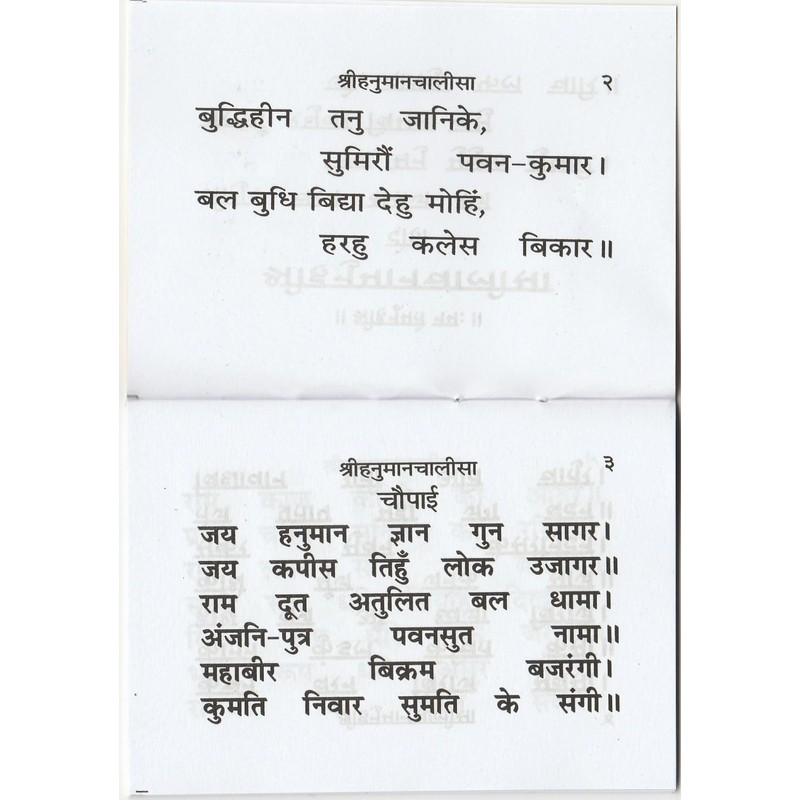 श्रीहनुमानचालीसा २
बुद्धिहीन तनु जानिके,
सुमिरौं पवन-कुमार।
बल बुधि बिद्या देहु मोहिं,
हरहु कलेस बिकार॥
श्रीहनुमानचालीसा ३
चौपाई
जय हनुमान ज्ञान गुन सागर।
जय कपीस तिहुँ लोक उजागर॥
राम दूत अतुलित बल धामा।
अंजनि-पुत्र पवनसुत नामा॥
महाबीर बिक्रम बजरंगी।
कुमति निवार सुमति के संगी॥